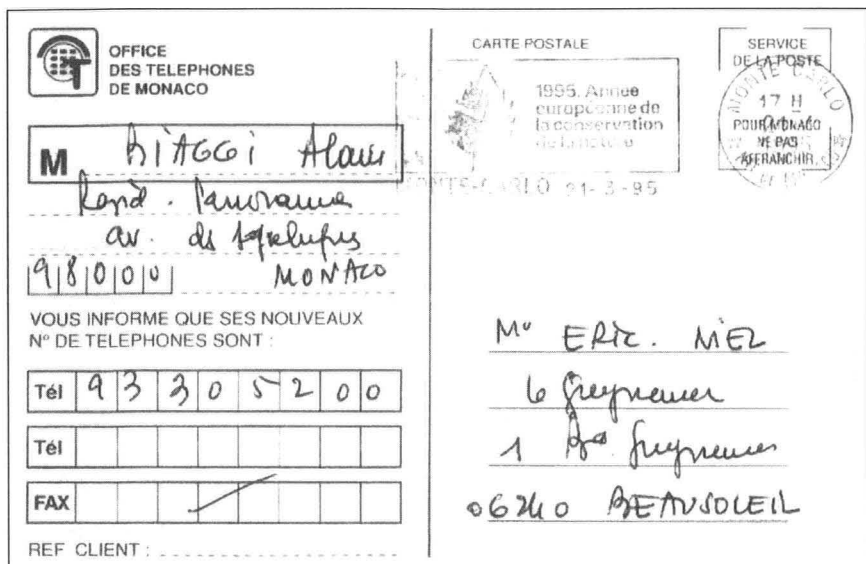 OFFICE
DES TELEPHONES
DE MONACO
M BIAGGI Alain
Resid. Panorama
av. ds
98000 MONACO
VOUS INFORME QUE SES NOUVEAUX
N° DE TELEPHONES SONT :
Tél 93305200
Tél
FAX
REF CLIENT :
CARTE POSTALE
1995. Année
européenne de
la conservation
de la nature
MONTE-CARLO 21-3-95
SERVICE
DE LA POSTE
MONTE CARLO
17 H
POUR MONACO
NE PAS
AFFRANCHIR
Mr ERIC. NIEL
le Guynemer
1 Bd Guynemer
06240 BEAUSOLEIL